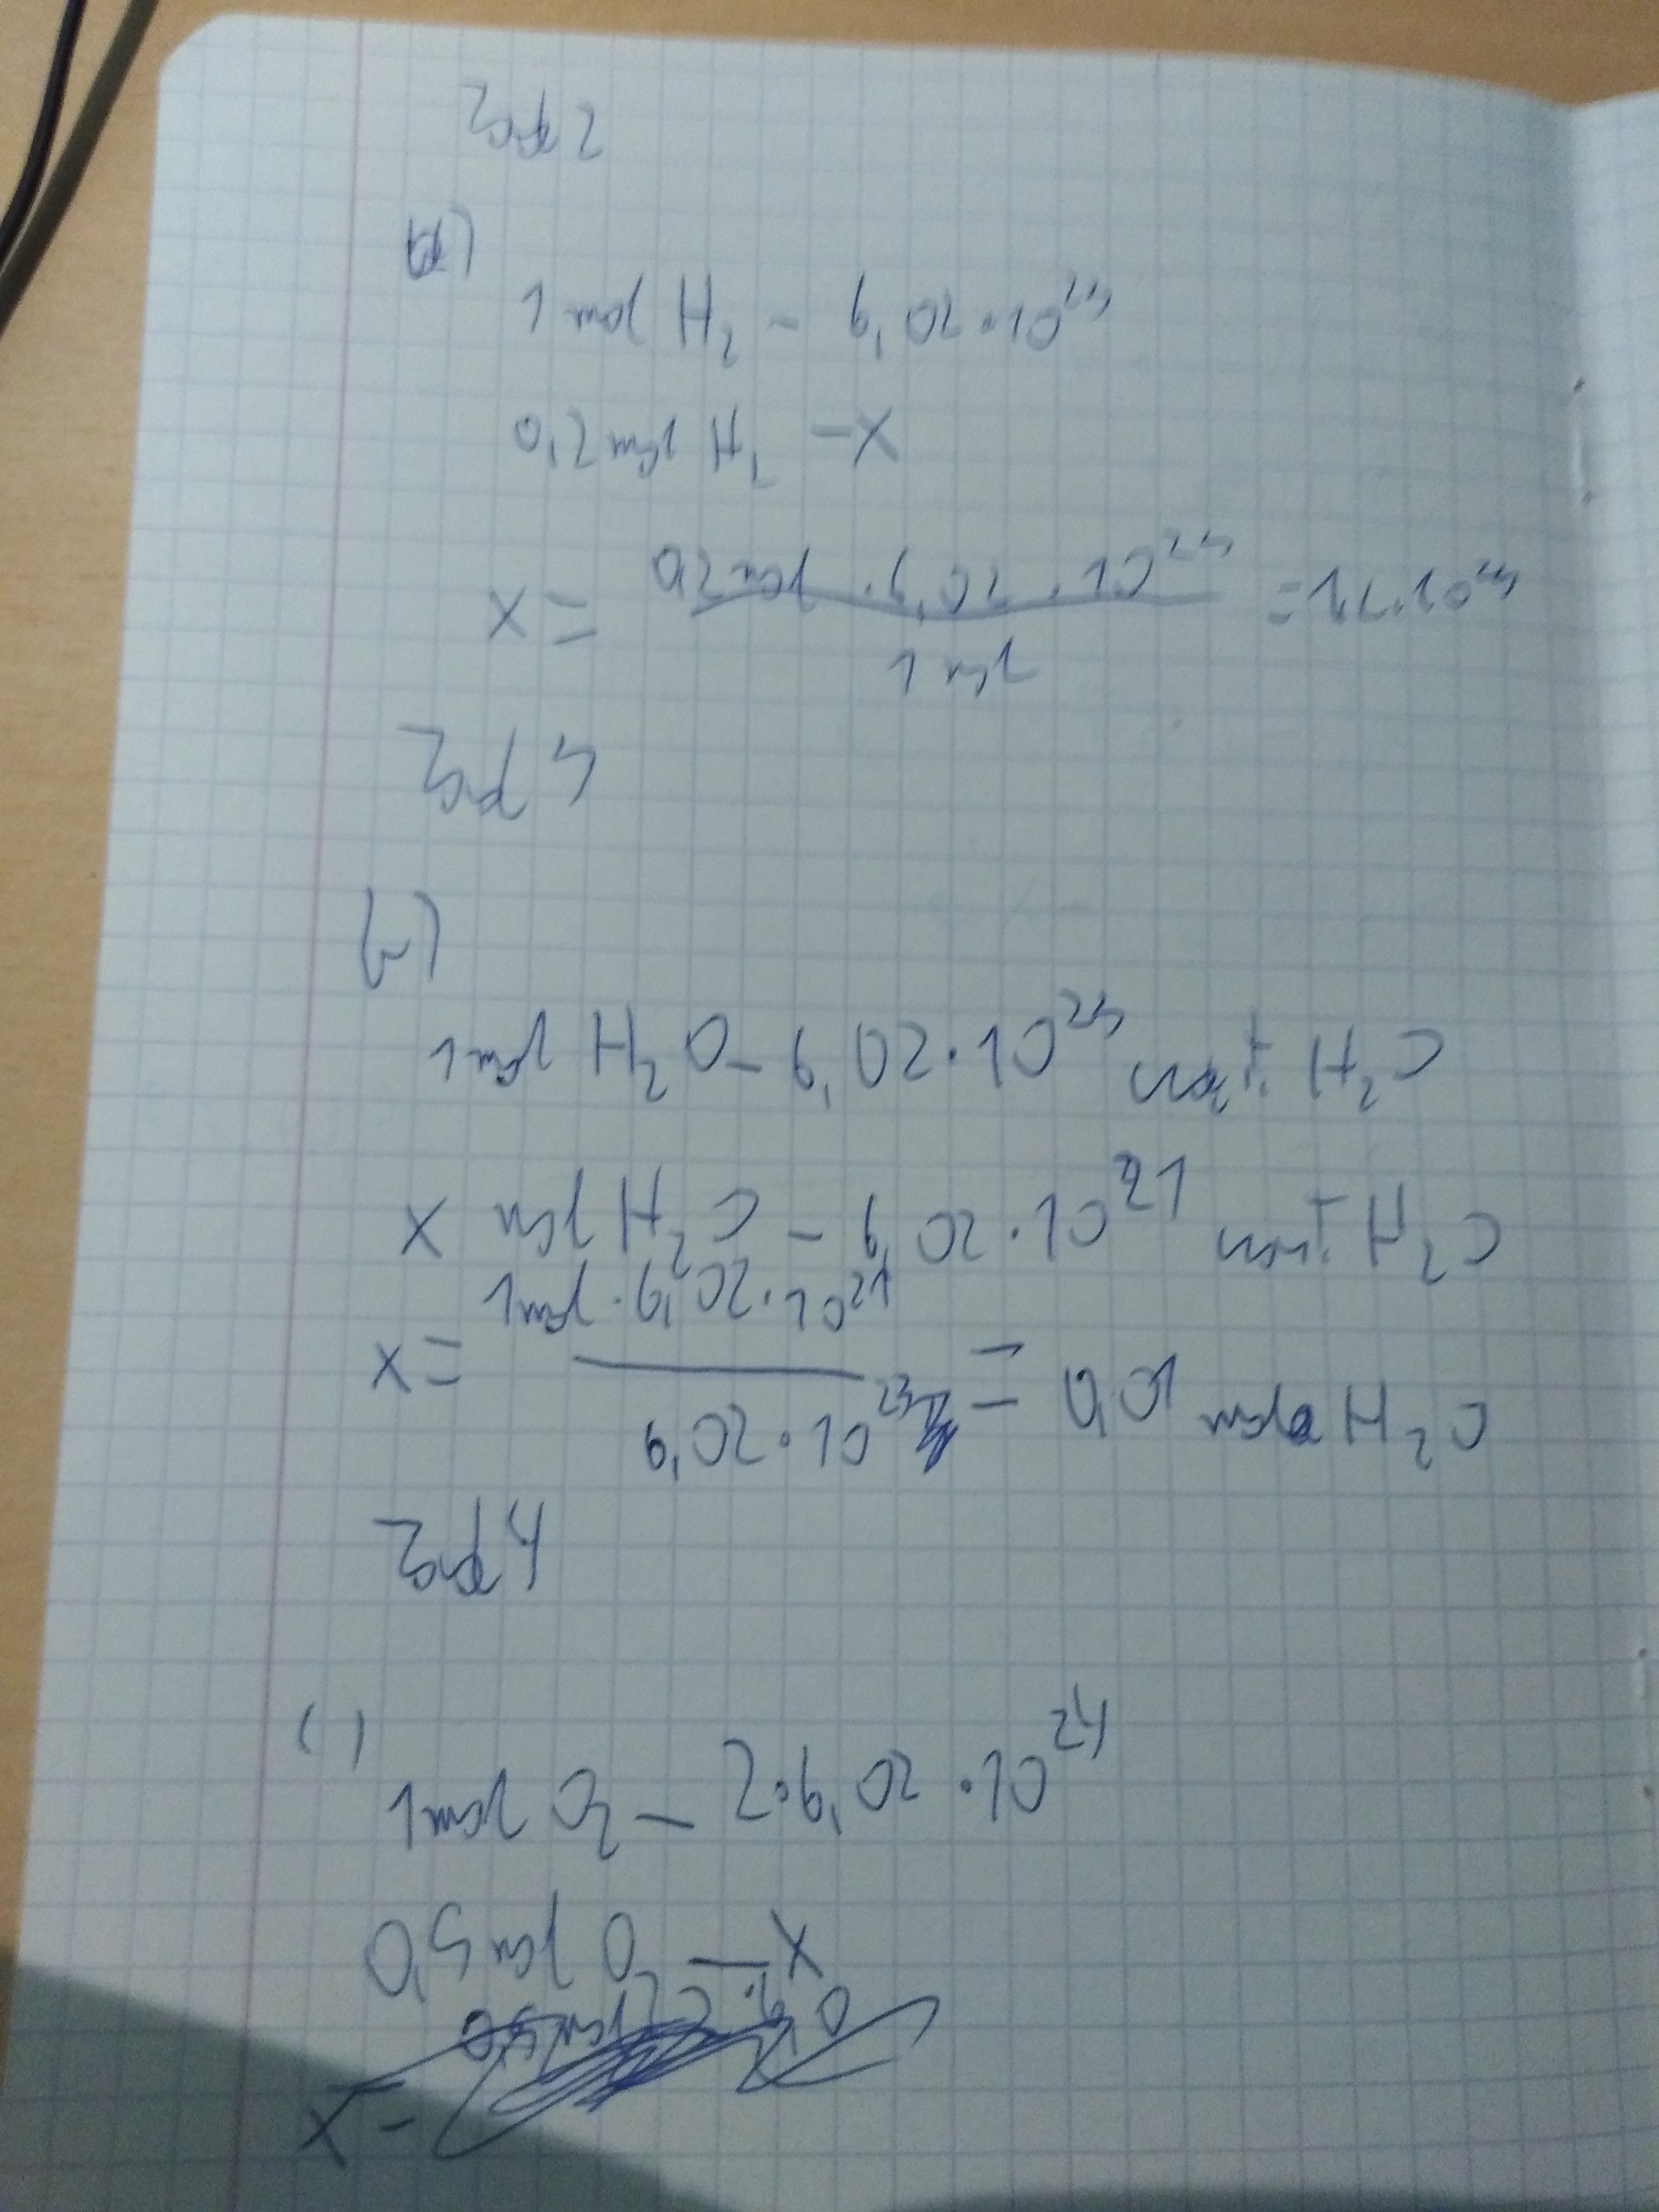 Zad 2
a)
1 mol H₂ - 6,02·10²³
0,2 mol H₂ - x
x = 0,2 mol · 6,02 · 10²³ / 1 mol = 1,2·10²³
Zad 3
b)
1 mol H₂O - 6,02·10²³ cząst. H₂O
x mol H₂O - 6,02·10²¹ cząst. H₂O
x = 1 mol · 6,02·10²¹ / 6,02·10²³ = 0,01 mola H₂O
Zad 4
c)
1 mol O₂ - 2·6,02·10²⁴
0,5 mol O₂ - x
x -